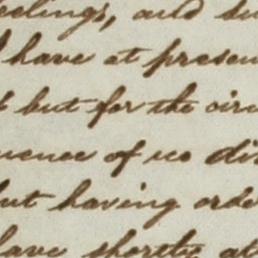 eelings, and
I have at presen
but for the circ
uence of no di
but having orde
have shortly at